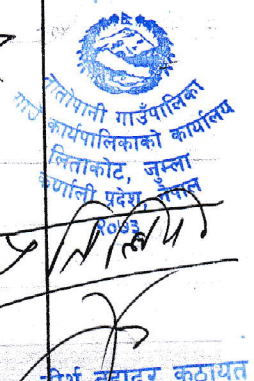 तातोपानी गाउँपालिका
गाउँ कार्यपालिकाको कार्यालय
लिताकोट, जुम्ला
कर्णाली प्रदेश, नेपाल
२०७३
तीर्थ बहादुर कठायत